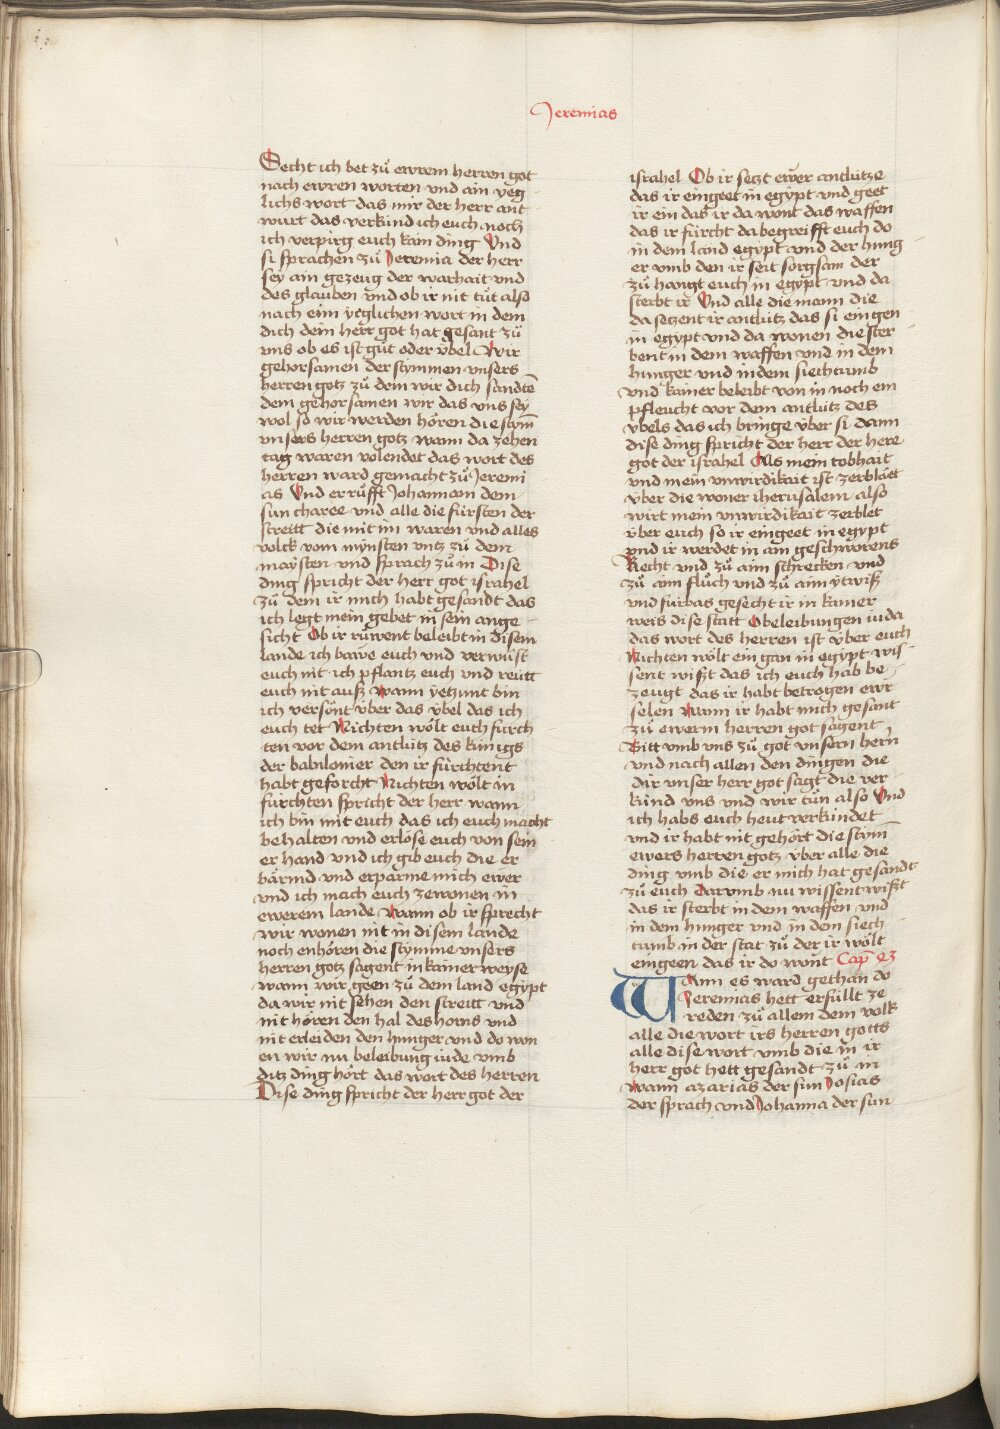 Jeremias
Secht ich bet zů ewrem herren got
nach ewren worten vnd ain yeg
lichs wort das mir der herr ant
wurt das verkind ich euch noch
ich verpirg euch kain ding Vnd
si sprachen zů Jeremia der herr
sey ain gezeug der warhait vnd
des glauben vnd ob ir nit tůt also
nach eim yeglichen wort in dem
dich dein herr got hat gesant zů
vns ob es ist gůt oder v̈bel Wir
gehorsamen der stymmen vnsers
herren gotz zů dem wir dich sandtē
dem gehorsamen wir das vns sey
wol so wir werden hören die stym̄
vnsers herren gotz wann da zehen
tag waren volendet das wort des
herren ward gemacht zů Jeremi
as Vnd er rüfft Johannam dem
sun charee vnd alle die fürsten der
streitt die mit im waren vnd alles
volck vom mynsten vntz zů dem
maysten vnd sprach zů in Dise
ding spricht der herr got israhel
zů dem ir mich habt gesandt das
ich legt mein gebet in sein ange
sicht Ob ir rüwent beleibt in disem
lande ich bawe euch vnd verwüst
euch nit ich pflantz euch vnd reutt
euch nit auß Wann yetzunt bin
ich versünt v̈ber das v̈bel das ich
euch tet Nichten wölt euch fürch
ten vor dem antlütz des künigs
der babilonier den ir fürchtent
habt geforcht Nichten wölt in
fürchten spricht der herr wann
ich bin mit euch das ich euch macht
behalten vnd erlöse euch von sein
er hand vnd ich gib euch die er
bärmd vnd erparme mich ewer
vnd ich mach euch zewonen in
ewerem lande Wann ob ir sprecht
wir wonen nit in disem lande
noch enhören die stymme vnsers
herren gotz sagent in kainer weyse
wann wir geen zů dem land egypt
da wir nit sehen den streitt vnd
nit hören den hal des horns vnd
nit erleiden den hunger vnd do won
en wir nu beleibung iude vmb
ditz ding hört das wort des herren
Dise ding spricht der herr got der
israhel Ob ir setzt ewer antlütze
das ir eingeet in egypt vnd geet
ir ein das ir da wont das waffen
das ir fürcht da begreifft euch do
in dem land egypt vnd der hung
er vmb den ir seit sorgsam der
zů hangt euch in egypt vnd da
sterbt ir Vnd alle die mann die
da setzent ir antlütz das si eingen
in egypt vnd da wonen die ster
bent in dem waffen vnd in dem
hunger vnd in dem siechtumb
vnd kainer beleibt von in noch em
pfleucht vor dem antlütz des
v̈bels das ich bringe v̈ber si dann
dise ding spricht der herr der here
got der israhel Als mein tobhait
vnd mein vnwirdikait ist zerblöet
v̈ber die woner iherusalem also
wirt mein vnwirdikait zerblet
v̈ber euch so ir eingeet in egypt
vnd ir werdet in ain geschworens
Recht vnd zů aim schrecken vnd
zů aim flůch vnd zů aim ytwiß
vnd fürbas gesecht ir in kainer
weis dise statt O beleibungen iuda
das wort des herren ist v̈ber euch
Nichten wölt ein gan in egypt wis
sent wißt das ich euch hab be
zeugt das ir habt betrogen ewr
selen Wann ir habt mich gesant
zů ewerm herren got sagent
Bitt vmb vns zů got vnsern hern
vnd nach allen den dingen die
dir vnser herr got sagt die ver
kund vns vnd wir tün also Vnd
ich habs euch heut verkündet
vnd ir habt nit gehört die stym̄
ewers herren gotz v̈ber alle die
ding vmb die er mich hat gesandt
zů euch Darumb nu wissent wißt
das ir sterbt in dem waffen vnd
in dem hunger vnd in dem siech
tumb in der stat zů der ir wölt
eingeen das ir do wont Cap̄ 43
WAnn es ward gethan do
Jeremias hett erfüllt ze
reden zů allem dem volk
alle die wort irs herren gotts
alle dise wort vmb die in ir
herr got hett gesandt zů in
Wann azarias der sun Josias
der sprach vnd Johanna der sun